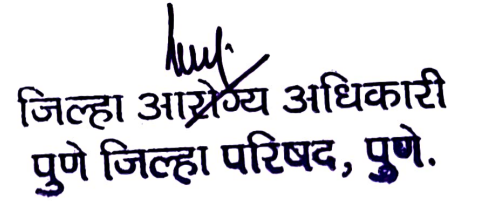 जिल्हा आरोग्य अधिकारी
पुणे जिल्हा परिषद, पुणे.